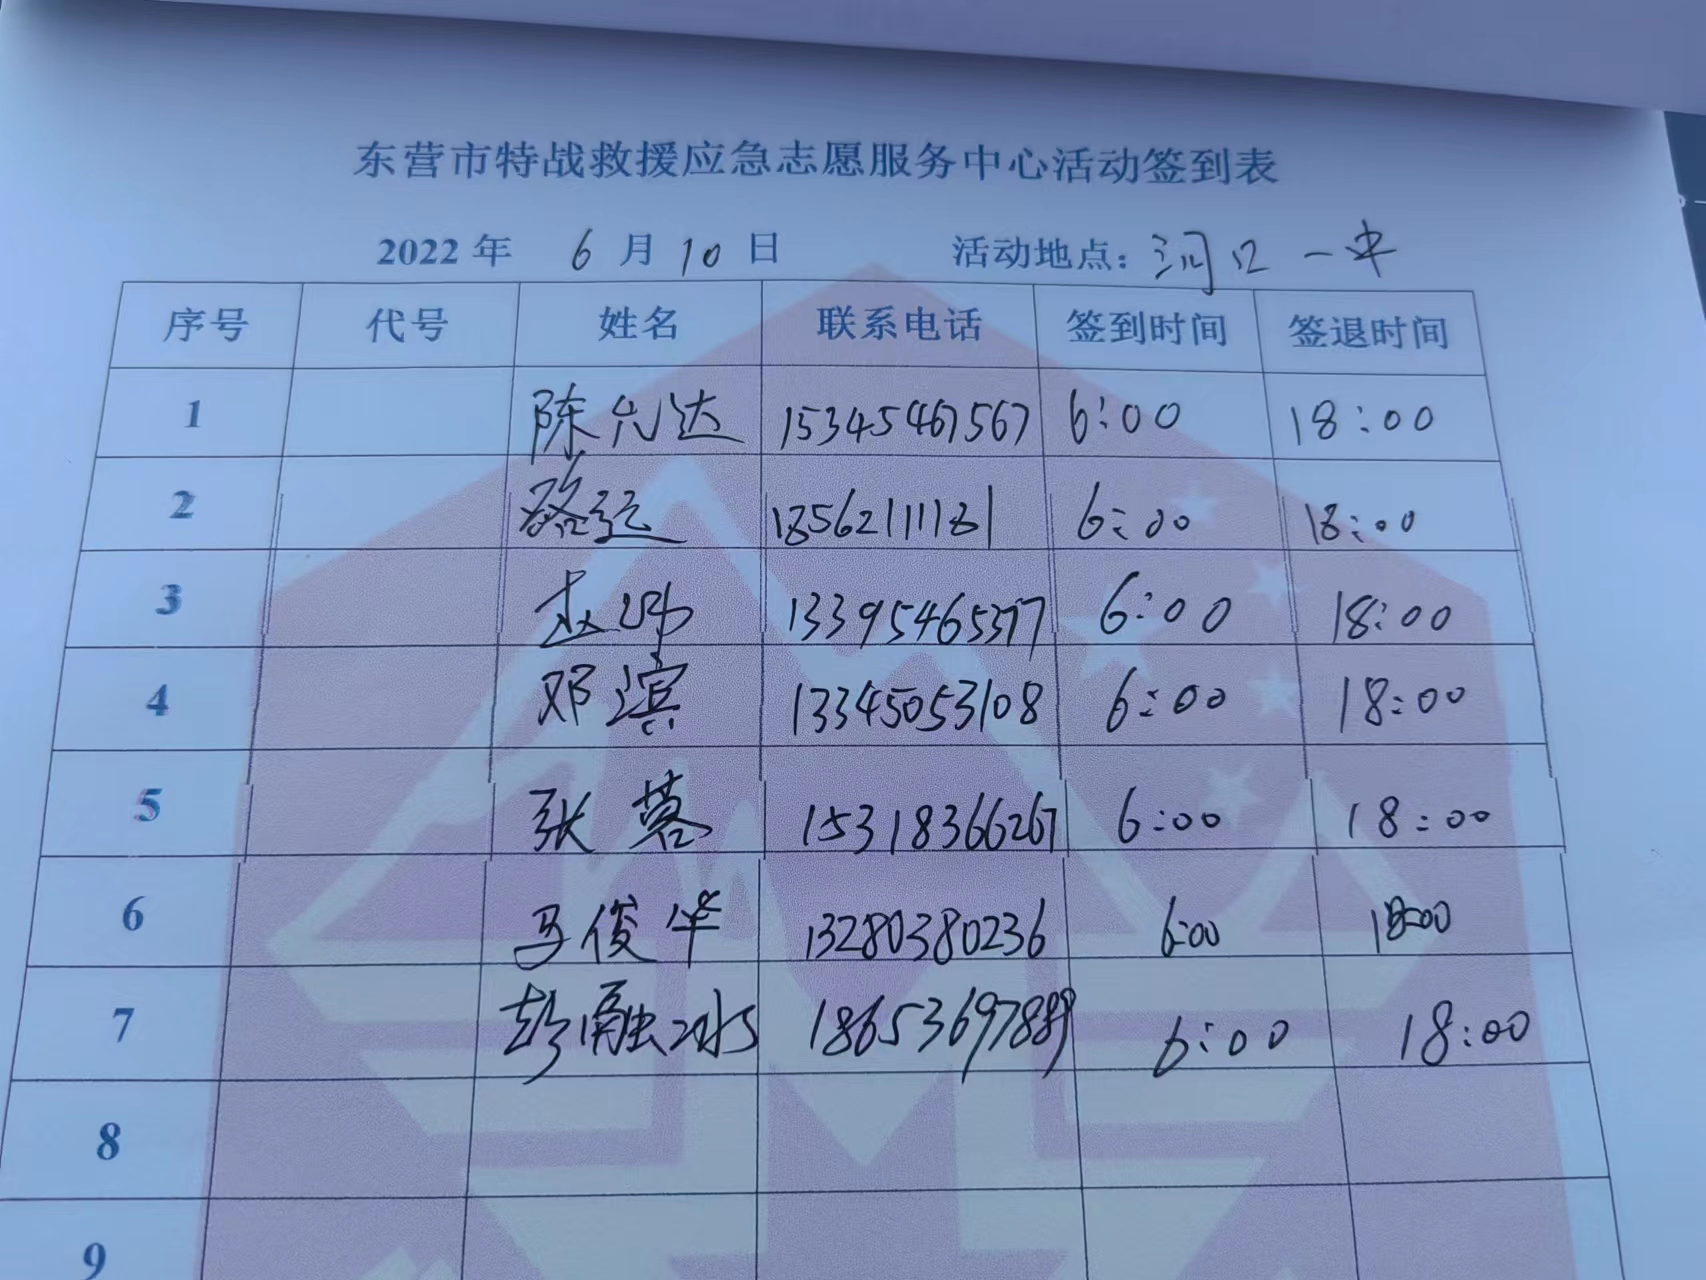 东营市特战救援应急志愿服务中心活动签到表
2022 年 6 月 10 日 活动地点: 河口一中
序号 代号 姓名 联系电话 签到时间 签退时间
1 陈允达 15345467567 6:00 18:00
2 18562111181 6:00 18:00
3 13395465377 6:00 18:00
4 邓滨 13345053108 6:00 18:00
5 张蓉 15318366267 6:00 18:00
6 马俊华 13280380236 6:00 18:00
7 彭融冰 18653697889 6:00 18:00
8
9